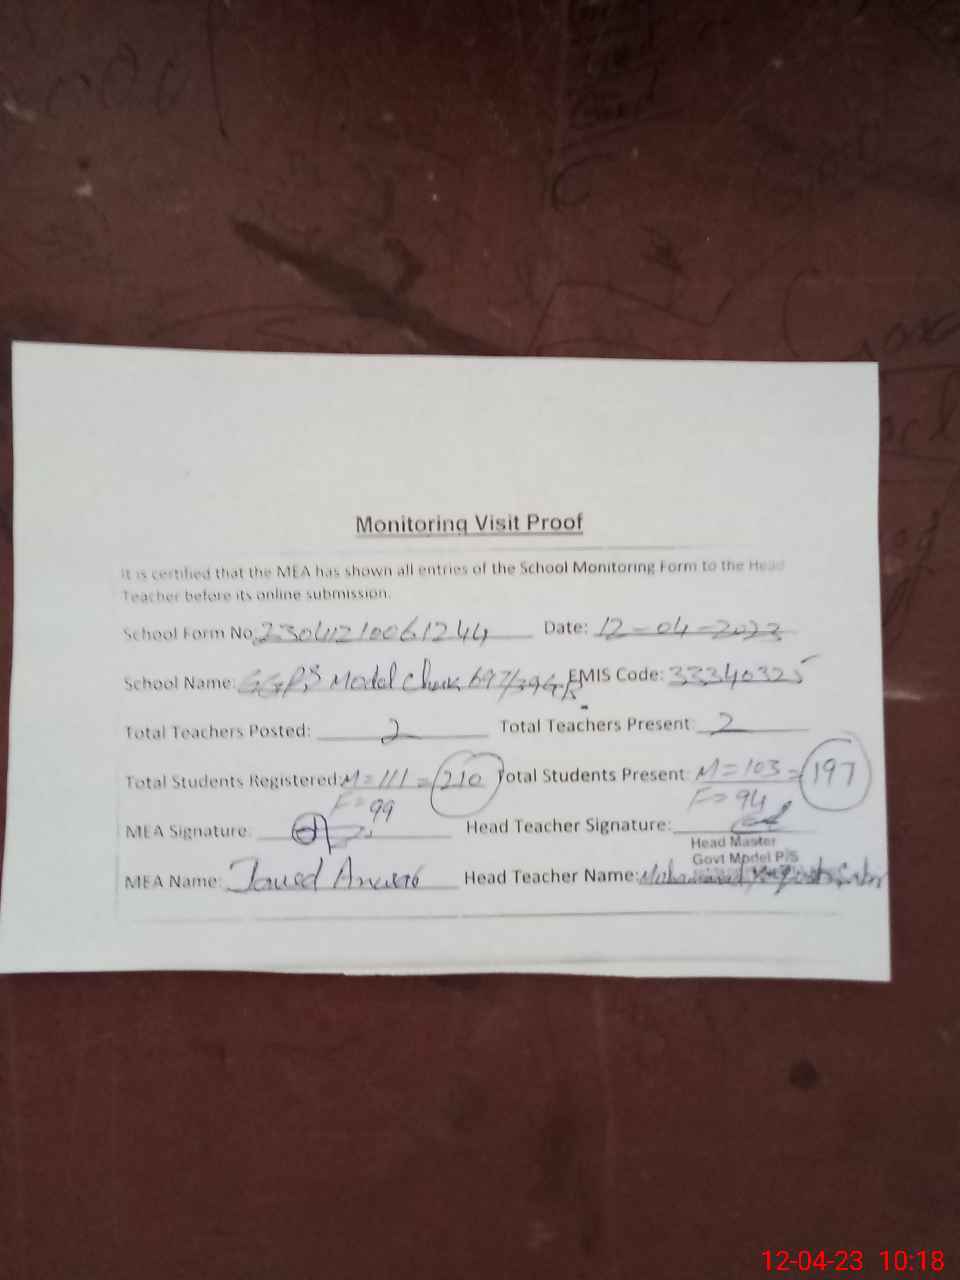 Monitoring Visit Proof
It is certified that the MEA has shown all entries of the School Monitoring Form to the Head
Teacher before its online submission.
School Form No 23041210061244 Date: 12-04-2023
School Name: GGPS Model Chak 697/39GB EMIS Code: 33340325
Total Teachers Posted: 2 Total Teachers Present: 2
Total Students Registered: M=111 = 210 Total Students Present: M=103 = 197
F=99 F=94
MEA Signature: Head Teacher Signature:
Head Master
Govt Model P/S
MEA Name: Javed Anwar Head Teacher Name: Muhammad
12-04-23 10:18